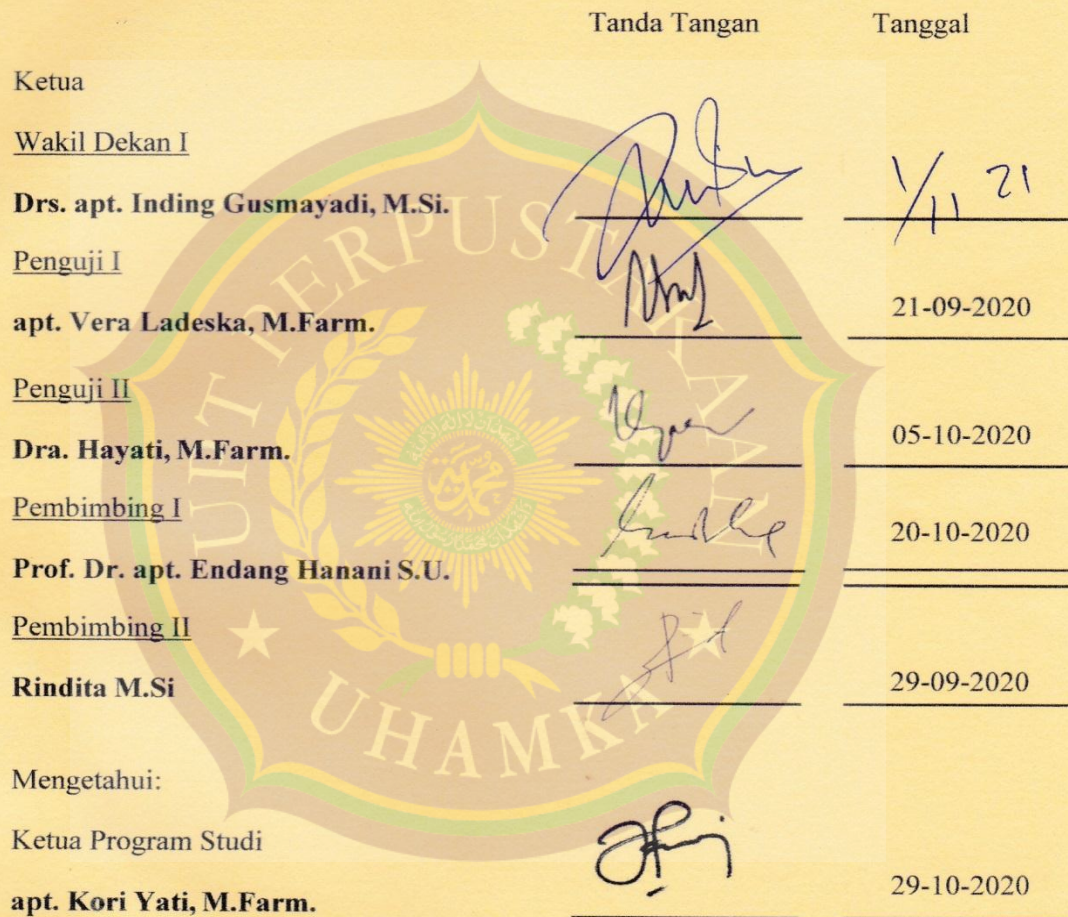 Tanda Tangan Tanggal
Ketua
Wakil Dekan I
Drs. apt. Inding Gusmayadi, M.Si. 1/11 21
Penguji I
apt. Vera Ladeska, M.Farm. 21-09-2020
Penguji II
Dra. Hayati, M.Farm. 05-10-2020
Pembimbing I
Prof. Dr. apt. Endang Hanani S.U. 20-10-2020
Pembimbing II
Rindita M.Si 29-09-2020
Mengetahui:
Ketua Program Studi
apt. Kori Yati, M.Farm. 29-10-2020
UPT PERPUSTAKAAN
UHAMKA